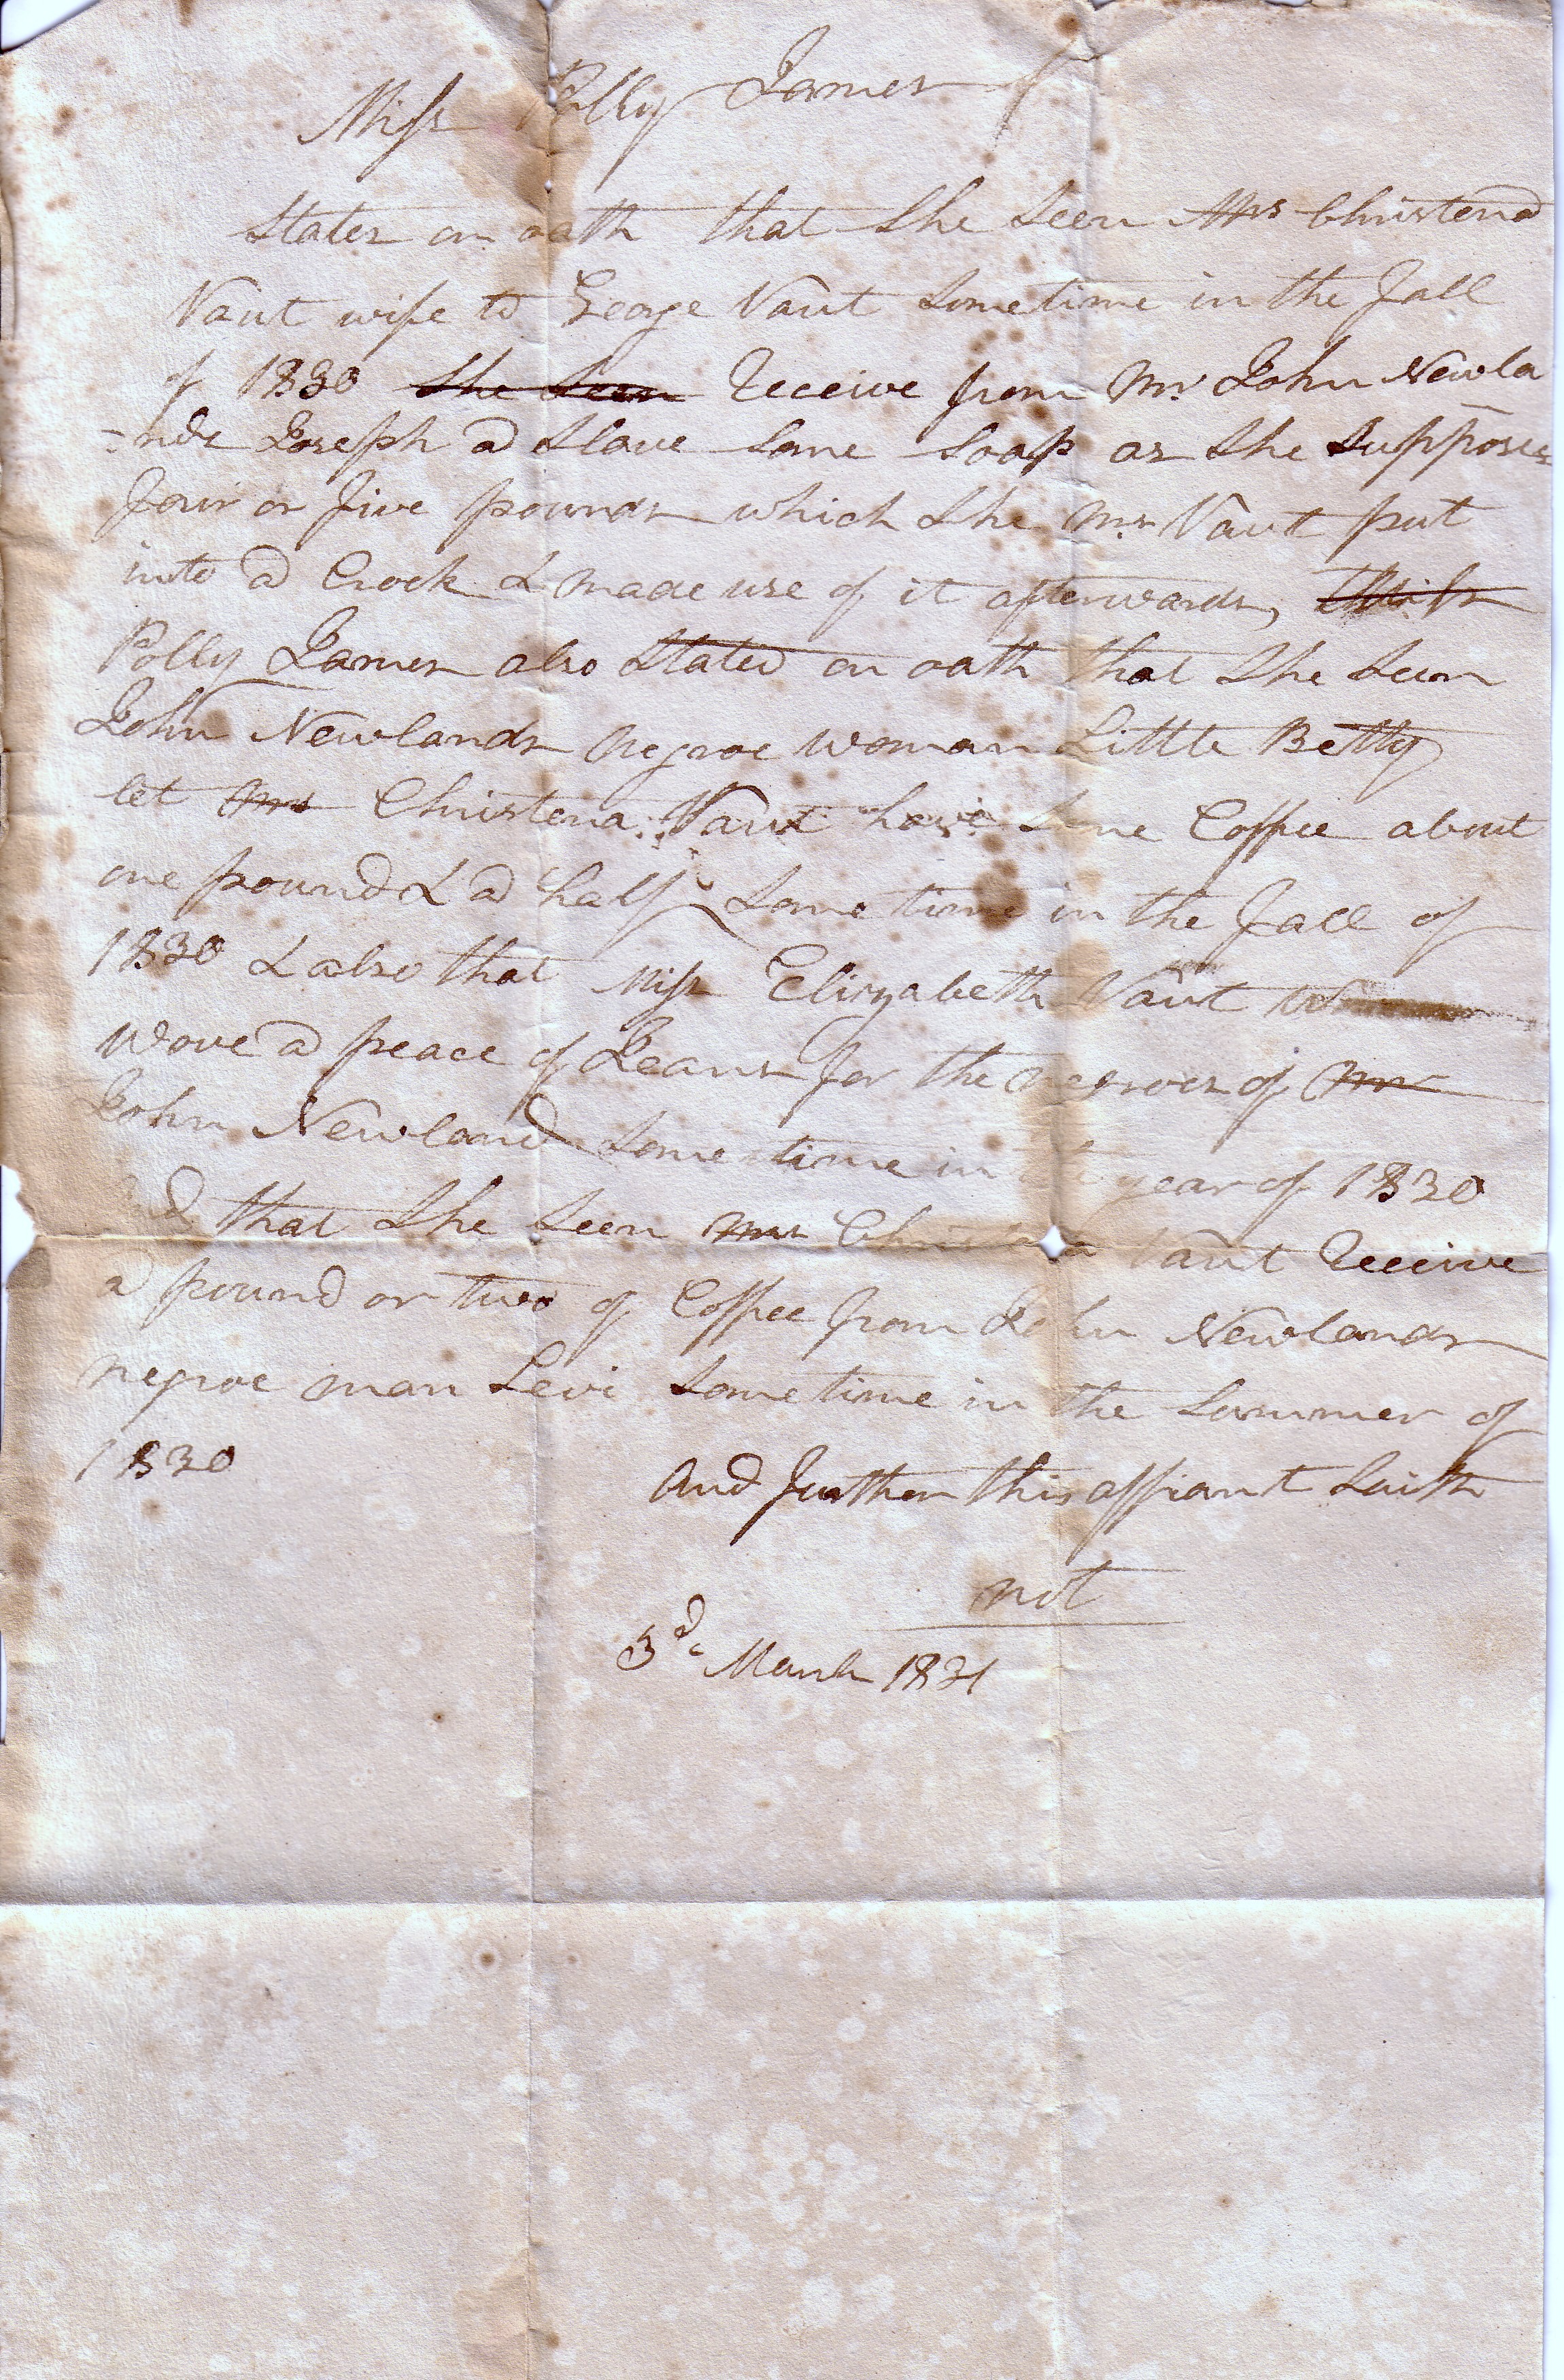 Miss Polly James
States on oath that She Seen Mrs Christena
Vaut wife to George Vaut Sometime in the fall
of 1830 She Seen Receive from Mr John Newla
=nds Joseph a Slave Some Soap as She Supposes
four or five pounds which She Mrs Vaut put
into a Crock & made use of it afterwards, Miss
Polly James also Stated on oath that She Seen
John Newlands negroe woman Little Betty
let Mrs Christena Vaut have Some Coffee about
one pound & a half Some time in the fall of
1830 & also that Miss Elizabeth Vaut
wove a peace of Jeans for the negroes of Mr
John Newland Some time in the year of 1830
that She Seen Mrs Christena Vaut Receive
a pound or two of Coffee from John Newlands
negroe man Levi Sometime in the Summer of
1830
And further this affiant Saith
not
3d March 1831